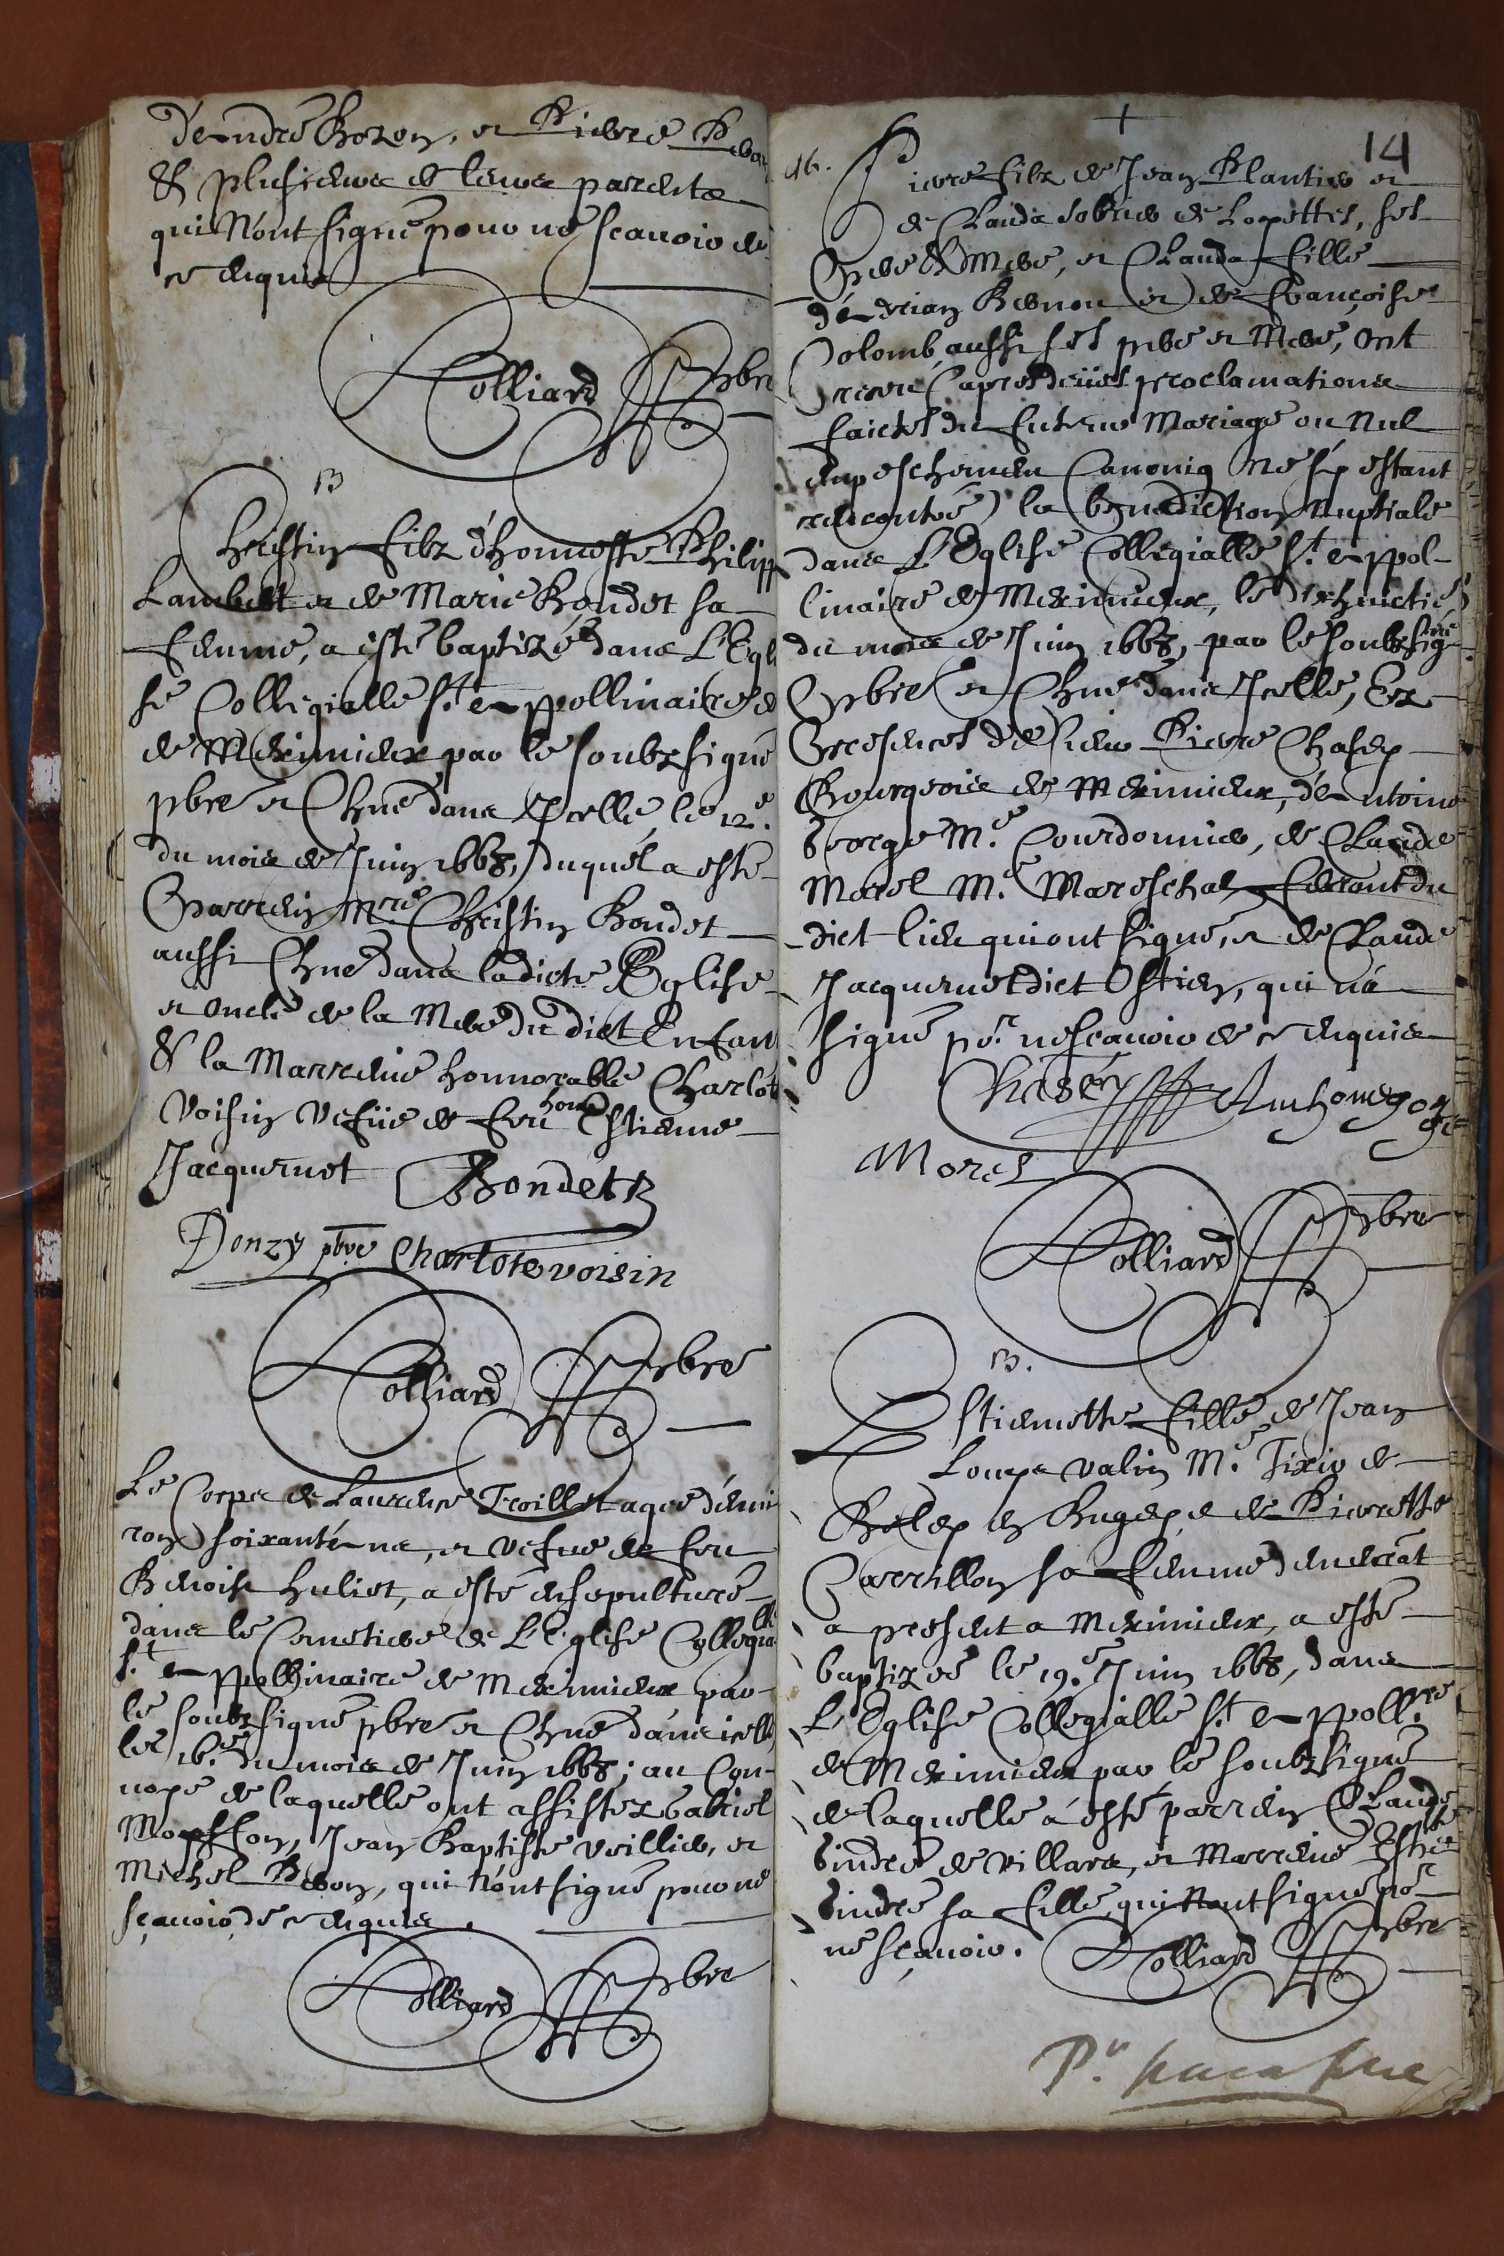 d'Andre Bozon, et Pierre
& plusieurs de leurs parents
qui n'ont signé pour ne scavoir de
ce enquis
Colliard pbre
B
Christin filz d'honneste Philipp
Lambert et de Marie Bondet sa
femme, a esté baptizé dans L'Egli
se Collegialle St. Appollinaire
de Meximieux par le soubzsigné
pbre et Chne dans Icelle, le 12.e
du mois de Juin 1668, duquel a esté
Parrein Mre Christin Bondet
aussi Chne dans la dicte Eglise
et oncle de la Mere du dict Enfant
& la Marreine honnorable Charlot
Voisin vefue de feu hon Estienne
Jacquemet Bondet
Donzy pbre Charlote voisin
Colliard pbre
Le Corps de Laurence Troillet agee d'enui
ron soixante ans, et vefue de feu
Benoist huliet, a esté ensepulturé
dans le Cimetiere de L'Eglise Collegialle
St. Appollinaire de Meximieux par
le soubzsigné pbre et Chne dans icelle
le 16.e du mois de Juin 1668; au Con-
uoye de laquelle ont assisté Gabriel
Jean Baptiste veillier, et
Michel qui n'ont signé pour ne
sçavoir de ce enquis.
Colliard pbre
14
M.
Pierre filz de Jean Plantier et
de Clauda de Loyettes, ses
Pere & Mere, et Clauda fille
d'Adrian et de Françoise
Colomb, aussi ses pere et Mere, ont
receu (apres deües proclamations
faictes du futur Mariage ou Nul
empeschement Canoniq ne s'y estant
rencontré) la benediction nuptiale
dans L'Eglise Collegialle St. Appol-
linaire de Meximieux, le dixhuictie
du mois de Juin 1668, par le soubzsigné
Pbre et Chne dans Icelle, Ez
Presences de sieur Pierre Chasey
Bourgeois de Meximieux, d'Antoine
George M.e Courdonnier, de Claude
Morel M.e Mareschal ferrant du
dict lieu qui ont signé, et de Claude
Jacquemet dict Ostien, qui n'a
signé pr. ne scavoir de ce enquis
Chasey Anthoine george
Morel
Colliard pbre
B.
Estiennette fille de Jean
Loup valin M.e Tixier de
Beley en Bugey, et de Pierrette
Carrillon sa femme demeurant
a present a Meximieux, a esté
baptizee le 19.e Juin 1668, dans
L'Eglise Collegialle St. Appoll.re
de Meximieux par le soubzsigné
de laquelle a esté parrein Claude
Gindre de Villars, et Marreine Estte
Gindre sa fille, qui n'ont signé pr
ne sçavoir. Colliard pbre
Pr. paraphe